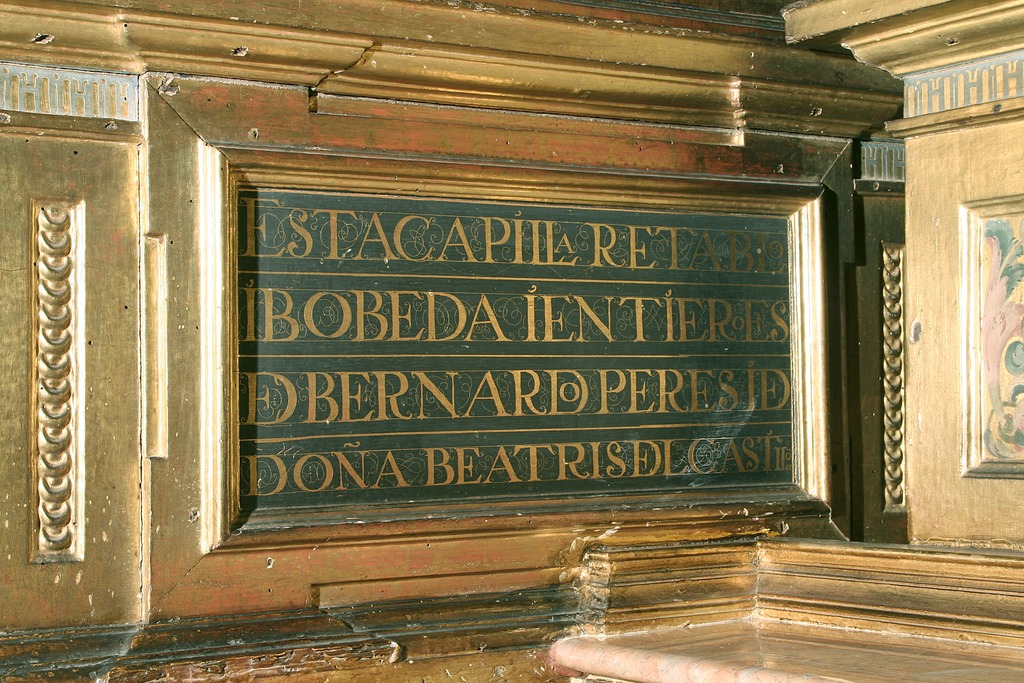 ESTA CAPILLA RETABLO
I BOBEDA I ENTIERO ES
D BERNARDO PERES I D
DOÑA BEATRIS DL CASTILO